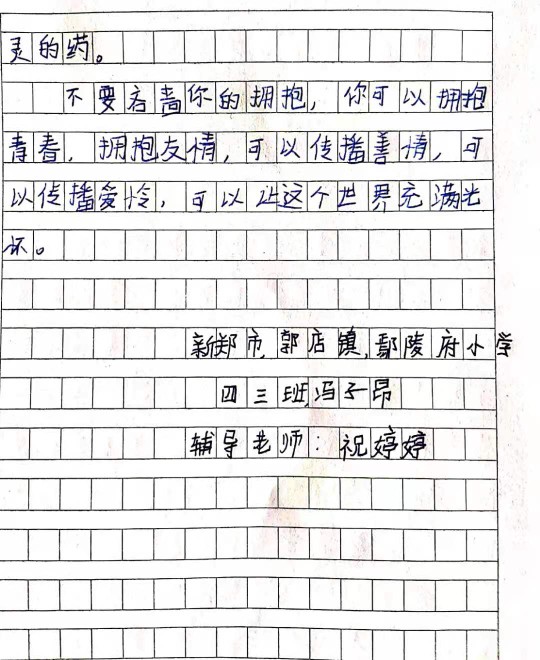 灵的药。
不要吝啬你的拥抱，你可以拥抱
青春，拥抱友情，可以传播善情，可
以传播爱怜，可以让这个世界充满光
坏。
新郑市,郭店镇,鄢陵府小学
四三班,冯子昂
辅导老师：祝婷婷